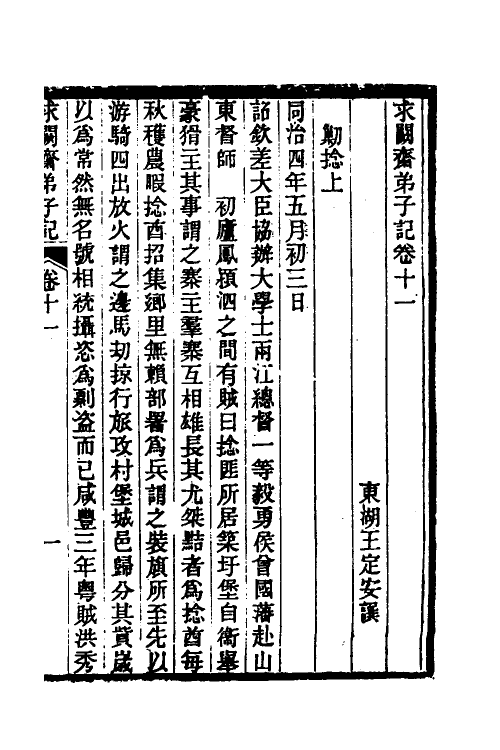 求闕齋弟子記卷十一
東湖王定安譔
勦捻上
同治四年五月初三日
詔欽差大臣協辦大學士兩江總督一等毅勇侯曾國藩赴山
東督師　初廬鳳潁泗之間有賊曰捻匪所居築圩堡自衞舉
豪猾主其事謂之寨主羣寨互相雄長其尤桀黠者爲捻酋每
秋穫農暇捻酋招集鄉里無賴部署爲兵謂之裝旗所至先以
游騎四出放火謂之邊馬刧掠行旅攻村堡城邑歸分其貲歲
以爲常然無名號相統攝恣爲剽盜而已咸豐三年粵賊洪秀
求闕齋弟子記　卷十一　一